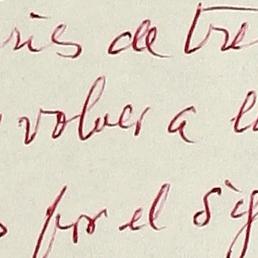 ris de tre
volver a l
s por el sig